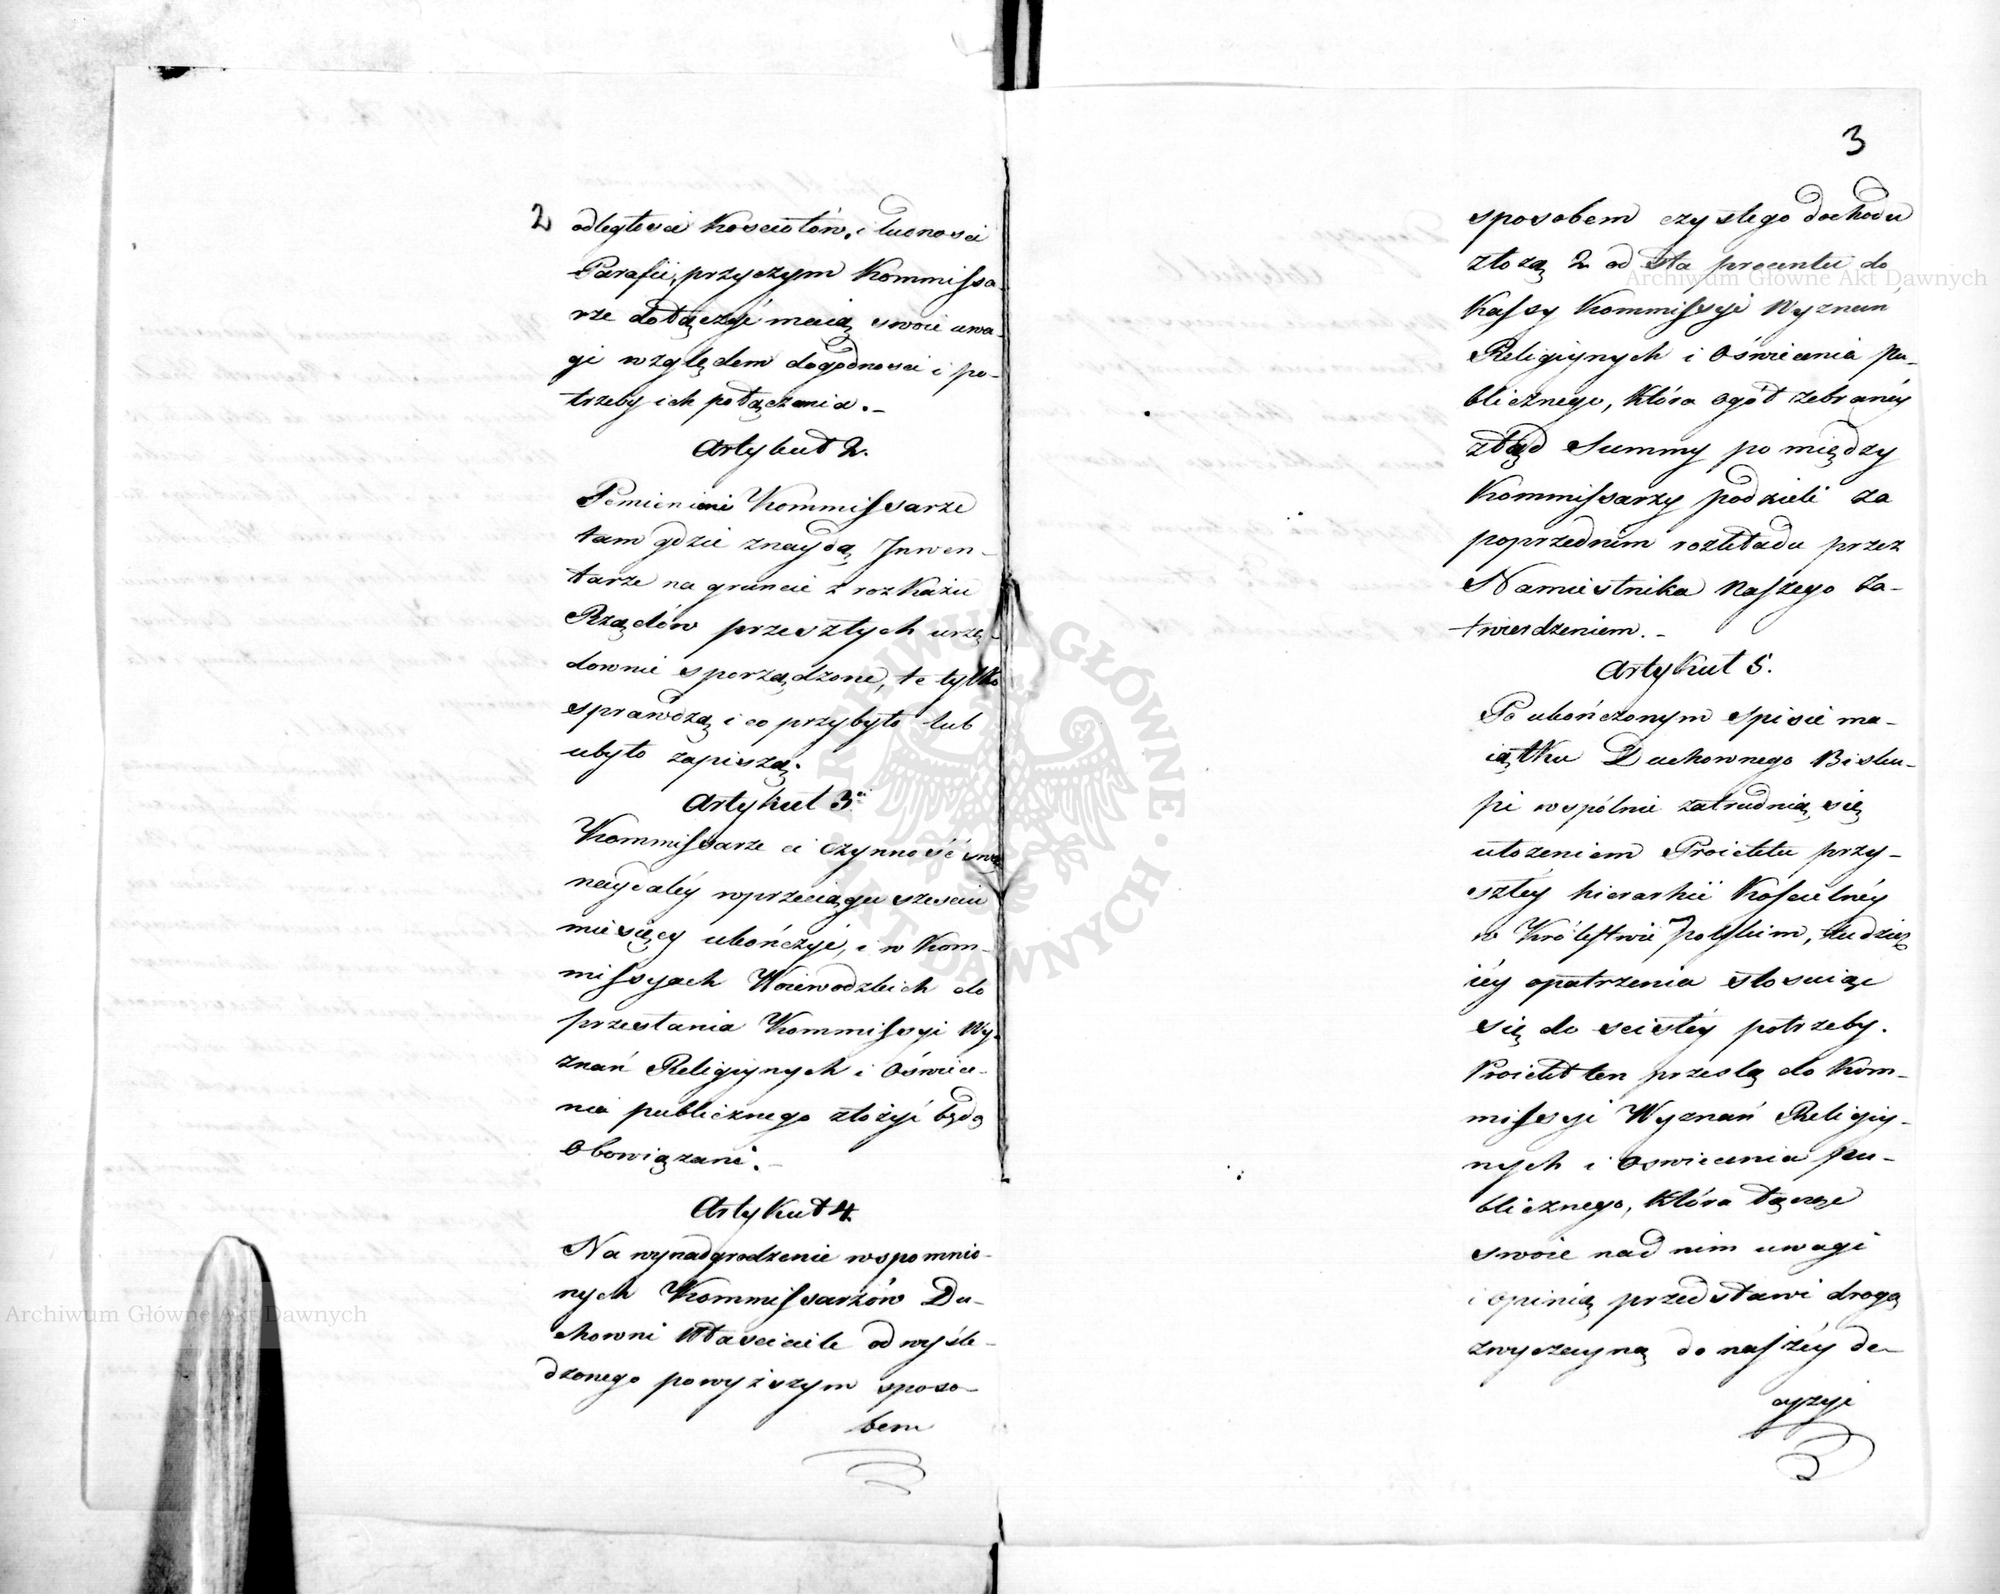 2
odległości Kościołów, i ludności
Parafii, przyczym Kommissa-
rze dołączyć maią swoie uwa-
gi względem dogodności i po-
trzeby ich połączenia.-
Artykuł 2.
Pomienieni Kommissarze
tam gdzie znaydą Inwen-
tarze na gruncie z rozkazu
Rządów przeszłych urzę-
downie sporządzone, te tylko
sprawdzą i co przybyło lub
ubyło zapiszą.
Artykuł 3ci
Kommissarze ci czynność swą
naydaléy wprzeciągu sześciu
miesięcy ukończyć, i w Kom-
missyach Woiewodzkich do
przesłania Kommissyi Wy-
znań Religiynych i Oświece-
nia publicznego złożyć będą
Obowiązani.-
Artykuł 4.
Na wynadgrodzenie wspomnio-
nych Kommissarzów Du-
chowni Własciciele od wyśle-
dzonego powyższym sposo-
bem
3
sposobem czystego dochodu
złożą 2 od sta procentu do
Kassy Kommissyi Wyznań
Religiynych i Oświecenia Pu-
blicznego, która ogół zebranéy
ztąd Summy pomiędzy
Kommissarzy podzieli za
poprzednim rozkładu przez
Namiestnika Naszego za-
twierdzeniem.-
Artykuł 5.
Po ukończonym spisie ma-
iątku Duchownego Bisku-
pi wspólnie zatrudnią się
ułożeniem Proiektu przy-
szłéy hierarkii Kościelnéy
w Królestwie Polskim, tudzież
iéy opatrzenia stosuiąc
się do scisłéy potrzeby.
Proiekt ten prześlą do Kom-
missyi Wyznań Religiy-
nych i Oswiecenia Pu-
blicznego, która łącząc
swoie nad nim uwagi
i opinią przedstawi drogą
zwyczayną do naszéy de-
cyzyi
Archiwum Główne Akt Dawnych
Archiwum Główne Akt Dawnych
ARCHIWUM GŁÓWNE AKT DAWNYCH